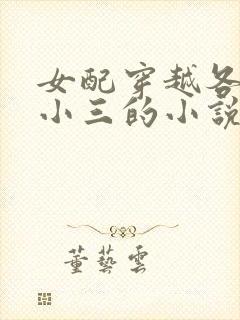 女配穿越各
小三的小說
董藝雲